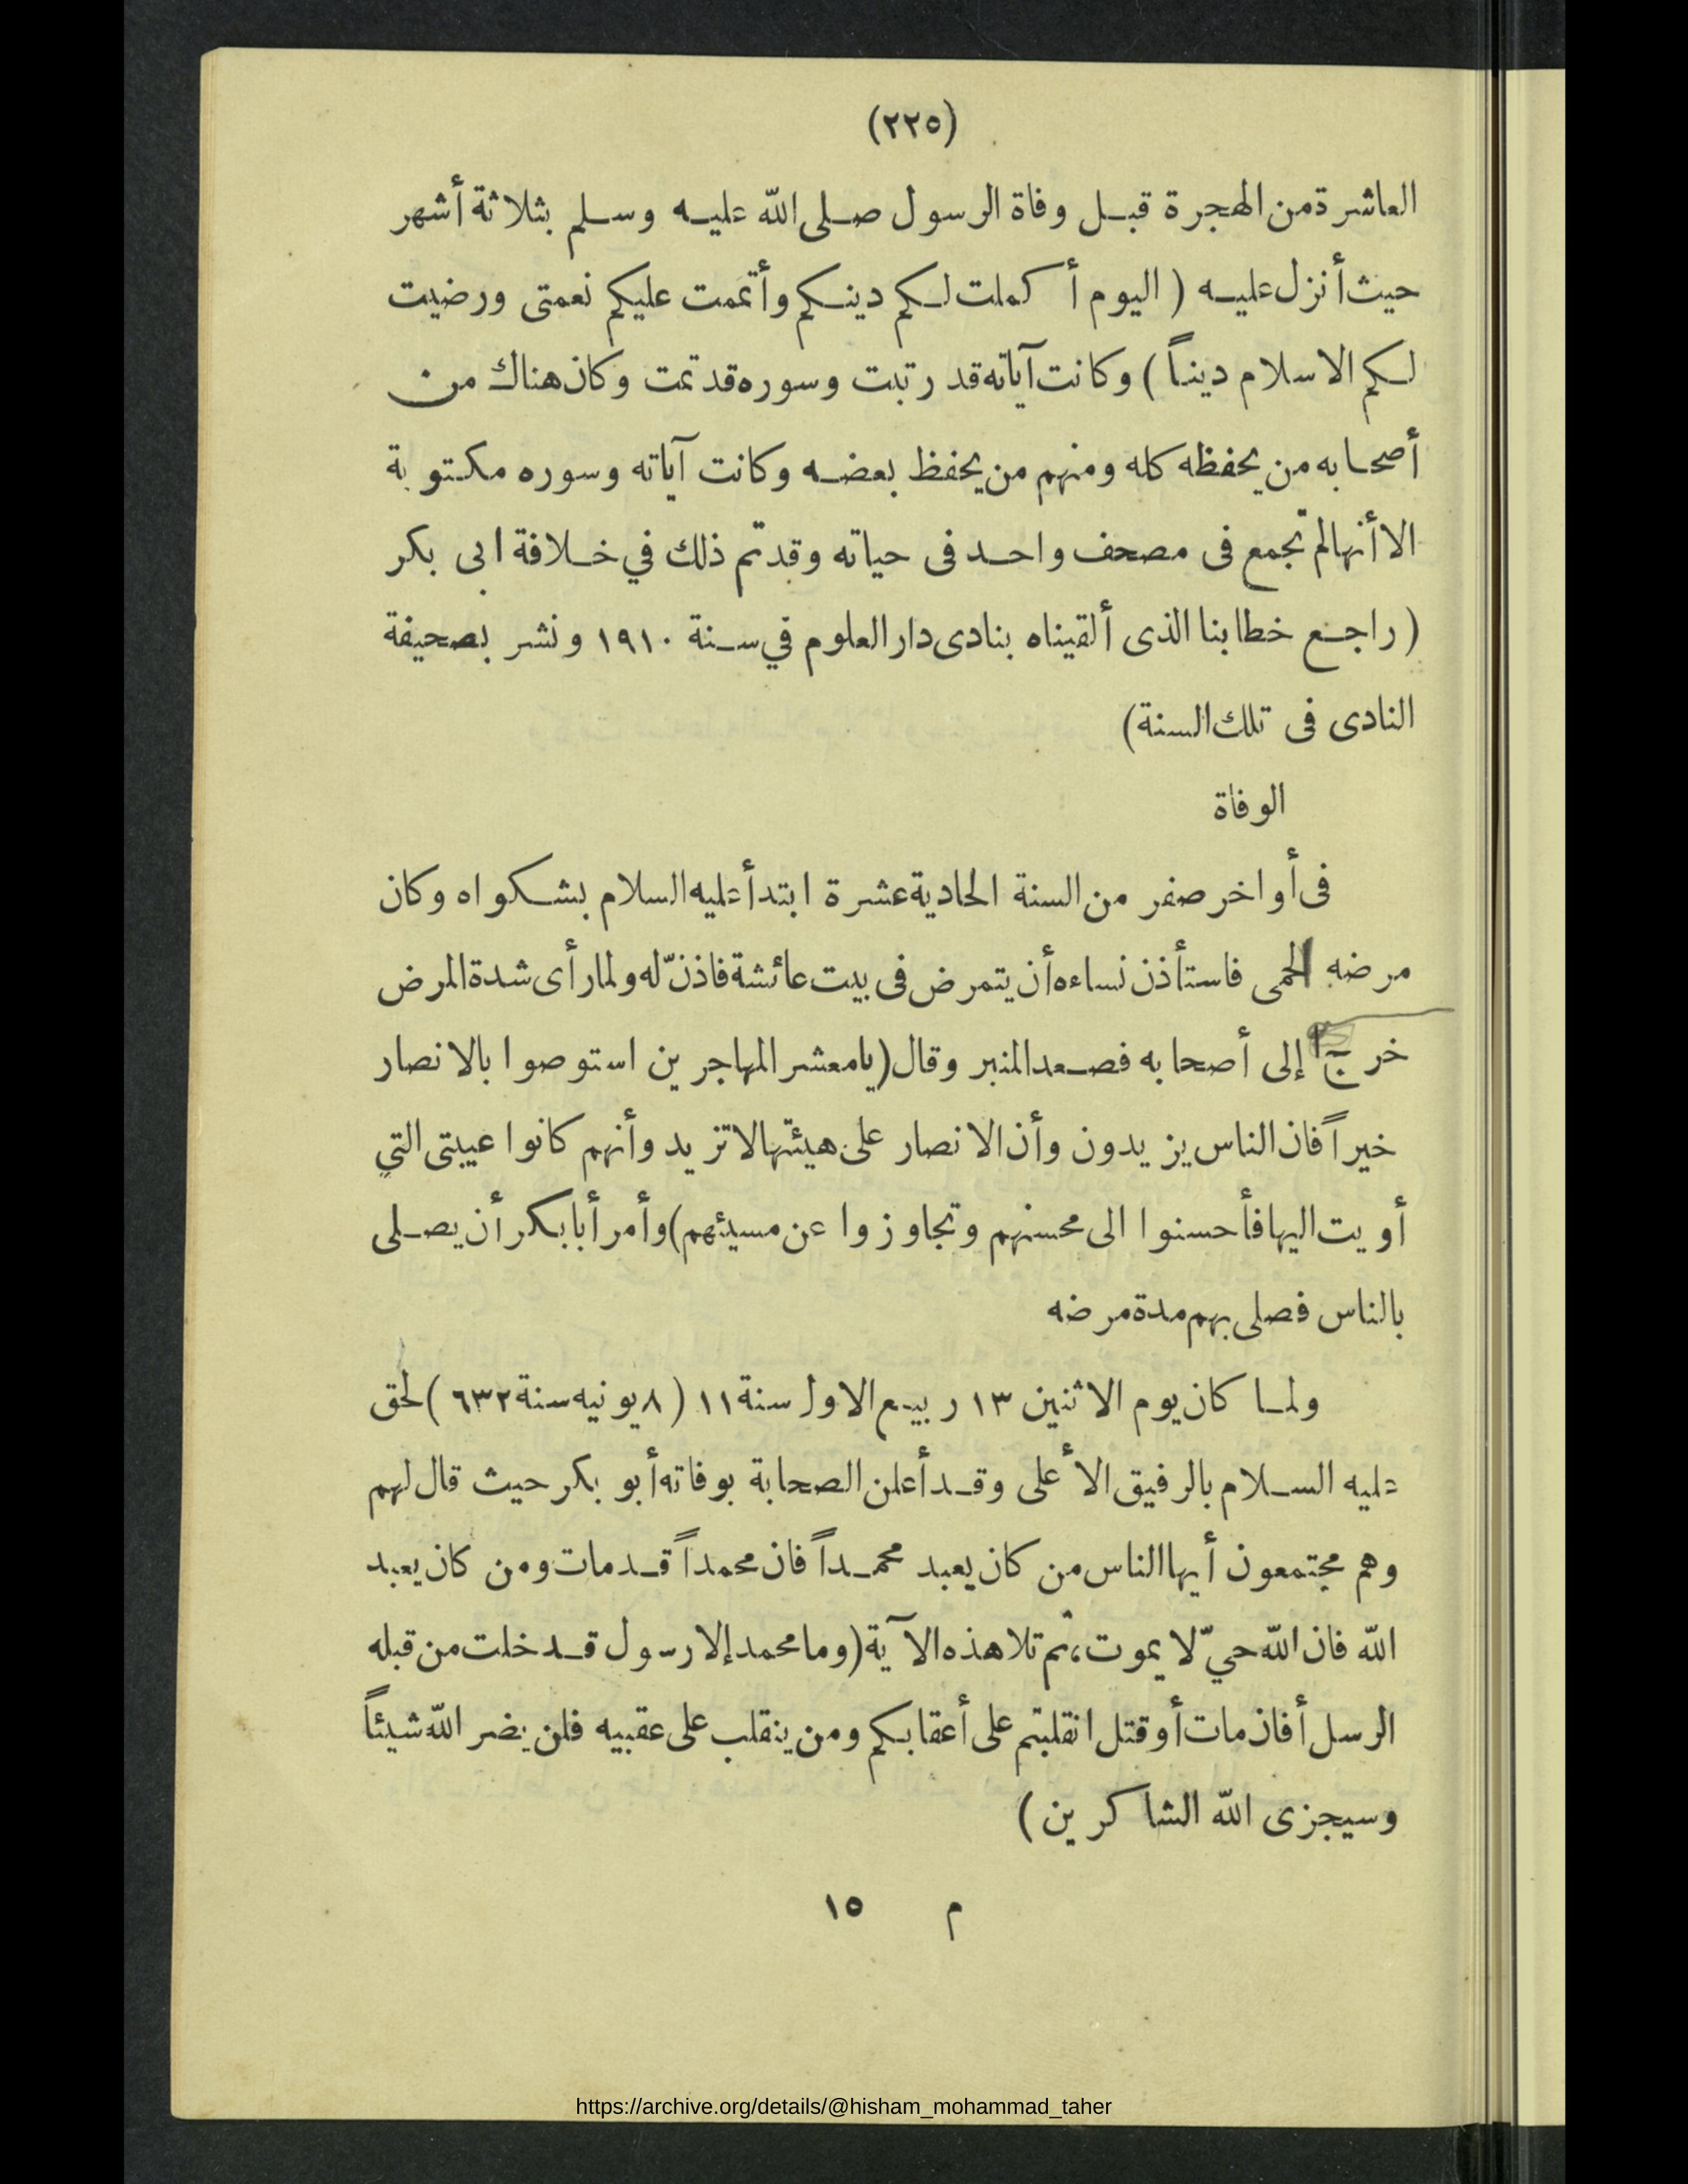 (٢٢٥)
العاشرة من الهجرة قبل وفاة الرسول صلى الله عليه وسلم بثلاثة أشهر
حيث أنزل عليه ( اليوم أكملت لكم دينكم وأتممت عليكم نعمتى ورضيت
لكم الاسلام ديناً ) وكانت آياته قد رتبت وسوره قد تمت وكان هناك من
أصحابه من يحفظه كله ومنهم من يحفظ بعضه وكانت آياته وسوره مكتوبة
الا أنها لم تجمع فى مصحف واحد فى حياته وقد تم ذلك في خلافة ابى بكر
( راجع خطابنا الذى ألقيناه بنادى دار العلوم في سنة ١٩١٠ ونشر بصحيفة
النادى فى تلك السنة)
الوفاة
فى أواخر صفر من السنة الحادية عشرة ابتدأ عليه السلام بشكواه وكان
مرضه الحمى فاستأذن نساءه أن يتمرض فى بيت عائشة فاذنّ له ولما رأى شدة المرض
خرج إلى أصحابه فصعد المنبر وقال (يا معشر المهاجرين استوصوا بالانصار
خيراً فان الناس يزيدون وأن الانصار على هيئتها لا تزيد وأنهم كانوا عيبتى التي
أويت اليها فأحسنوا الى محسنهم وتجاوزوا عن مسيئهم) وأمر أبا بكر أن يصلى
بالناس فصلى بهم مدة مرضه
ولما كان يوم الاثنين ١٣ ربيع الاول سنة ١١ ( ٨ يونيه سنة ٦٣٢ ) لحق
عليه السلام بالرفيق الأعلى وقد أعلن الصحابة بوفاته أبو بكر حيث قال لهم
وهم مجتمعون أيها الناس من كان يعبد محمداً فان محمداً قد مات ومن كان يعبد
الله فان الله حيّ لا يموت، ثم تلا هذه الآية (وما محمد إلا رسول قد خلت من قبله
الرسل أفان مات أو قتل انقلبتم على أعقابكم ومن ينقلب على عقبيه فلن يضر الله شيئاً
وسيجزى الله الشاكرين )
م ١٥
https://archive.org/details/@hisham_mohammad_taher